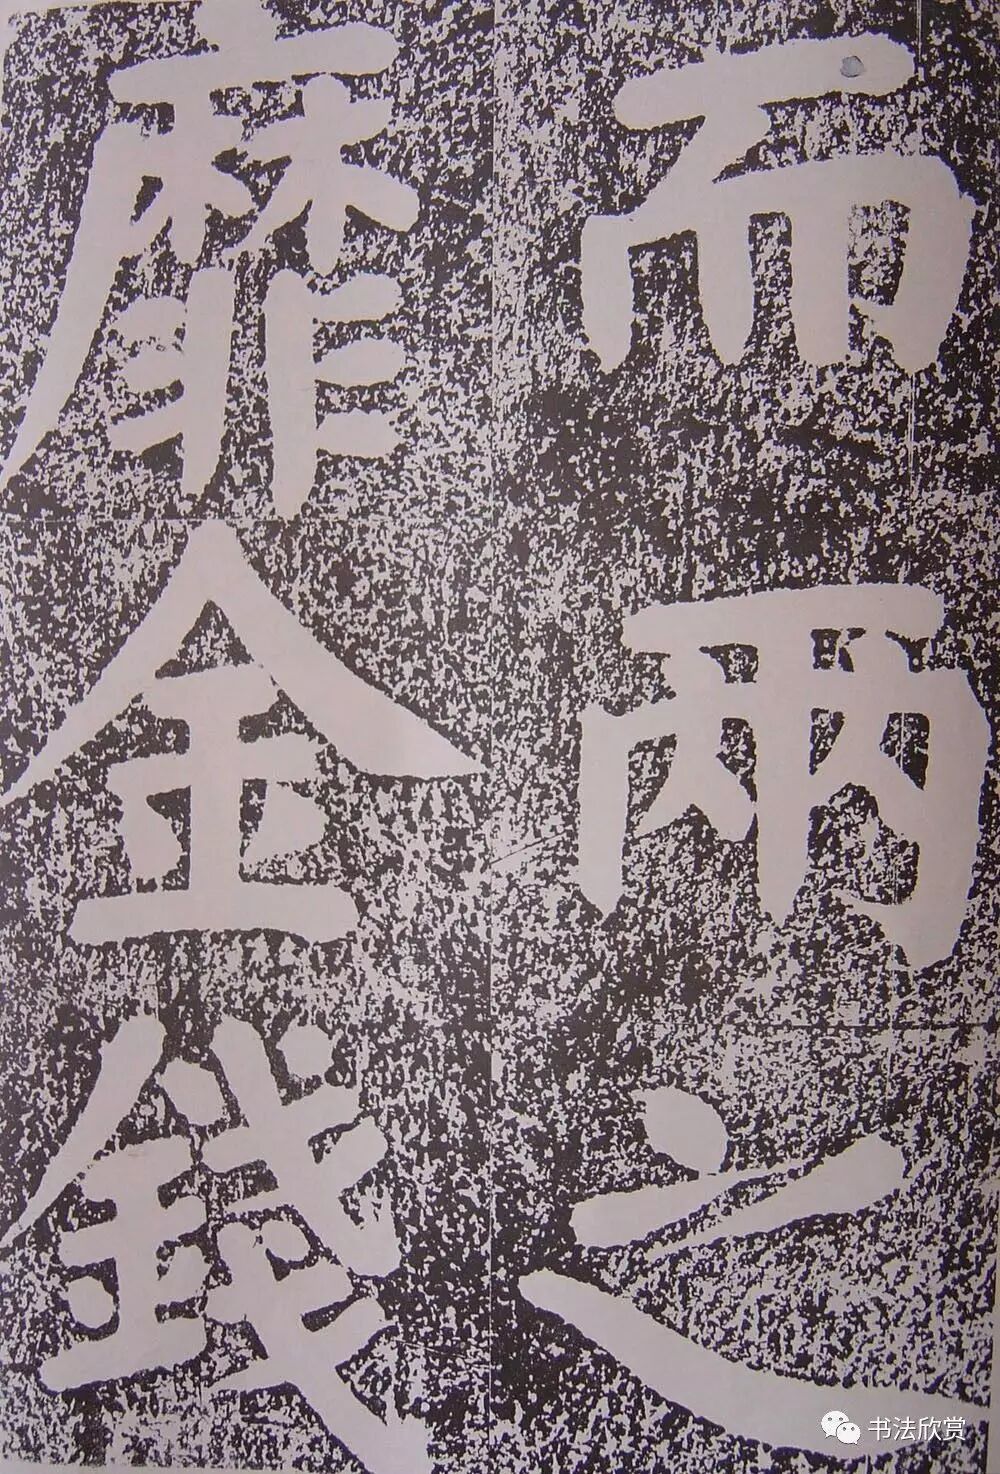 而兩之
靡金錢
书法欣赏